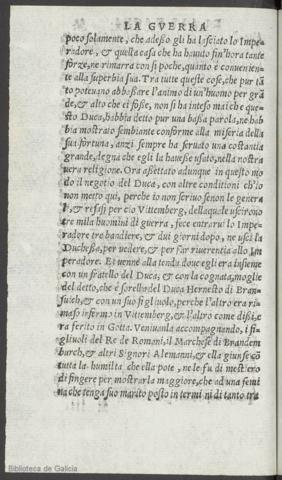 LA GVERRA
poco solamente, che adesso gli ha lasciato lo Impe-
radore, & quella casa che ha hauuto fin'hora tante
forze, ne rimarra con si poche, quanto è conuenien-
te alla superbia sua. Tra tutte queste cose, che pur tã
to poteuano abbassare l'animo di un'huomo per grã
de, & alto che ei fosse, non si ha inteso mai che que-
sto Duca, habbia detto pur una bassa parola, ne hab
bia mostrato sembiante conforme alla miseria della
sua fortuna, anzi sempre ha seruato una costantia
grande, degna che egli la hauesse usata, nella nostra
uera religione. Ora assettato adunque in questo mo
do il negotio del Duca, con altre conditioni ch'io
non metto qui, perche io non scriuo senon le genera
li, & resasi per ciò Vittemberg, della quale uscirono
tre mila huomini di guerra, fece entrarui lo Impe-
radore tre bandiere, & dui giorni dopo, ne uscì la
Duchessa, per uedere, & per far riuerentia allo Im
peradore. Et uenne alla tenda doue egli era insieme
con un fratello del Duca, & con la cognata, moglie
del detto, che è sorella del Duca Hernesto di Bran-
suich, & con un suo figliuolo, perche l'altro era ri-
maso infermo in Vittemberg, & l'altro come dissi, e-
ra ferito in Gotta. Veniuanla accompagnando, i fi-
gliuoli del Re de Romani, il Marchese di Brandem
burch, & altri Signori Alemanni, & ella giunse cõ
tutta la humilta che ella pote, ne le fu di mestiero
di fingere per mostrarla maggiore, che ad una femi
na che tenga suo marito posto in termini di tanto tra
Biblioteca de Galicia